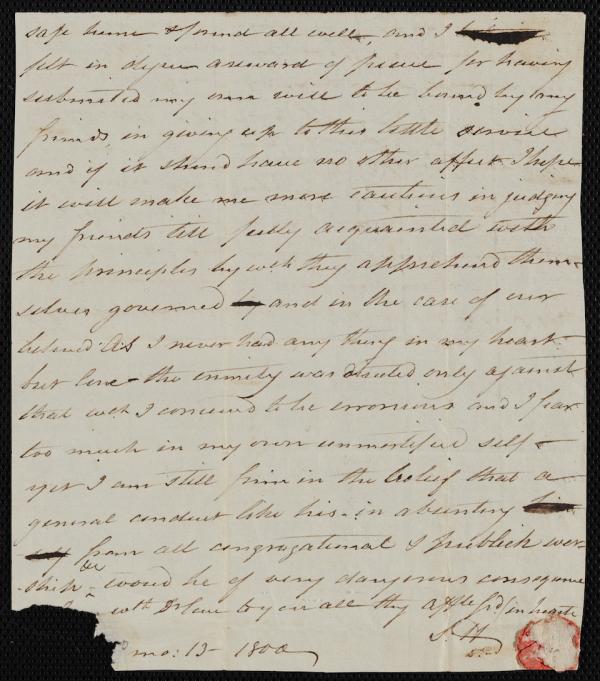 safe home & found all well, and I
felt in degree a reward of peace for having
submited my own will to be bound by my
friends in giving up to this little service
and if it should have no other affect I hope
it will make me more cautious in judging
my friends till fully acquainted with
the principles by wch they apprehend them-
selves governed and in the case of our
beloved AS I never had any thing in my heart
but love - the enmity was directed only against
that wch I conceived to be erronious and I fear
too much in my own unmortified self -
yet I am still firm in the belief that a
general conduct like his - in absenting
from all congregational & publick wor-
ship - would be of very dangerous consequence
wth Dr love to you all thy affte frd in haste
S H
mo: 13 - 1800